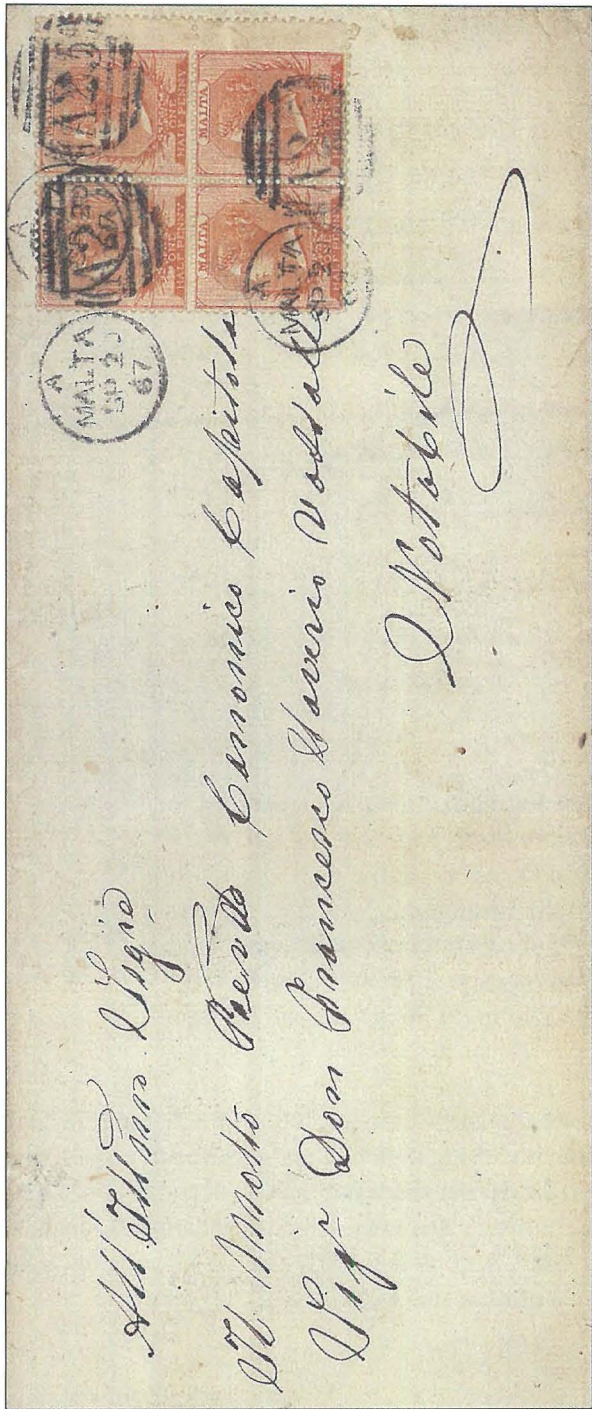 All' Illmo Sigre
Il Molto Revdo Canonico Capitola
Sigr Don Francesco Saverio Vassallo
Notabile
A
MALTA
SP 2
67
A
MALTA
SP 2
67
A25
MALTA
MALTA
HALFPENNY
HALFPENNY
ONE